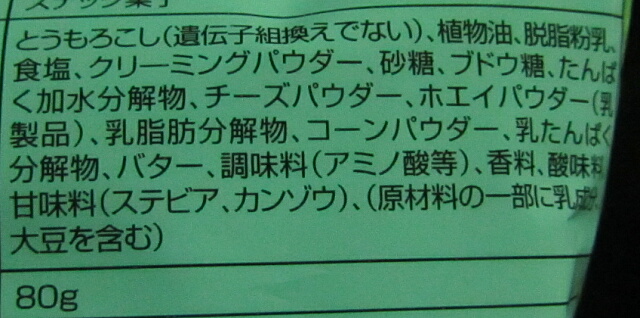 スナック菓子
とうもろこし(遺伝子組換えでない)、植物油、脱脂粉乳、
食塩、クリーミングパウダー、砂糖、ブドウ糖、たんぱ
く加水分解物、チーズパウダー、ホエイパウダー(乳
製品)、乳脂肪分解物、コーンパウダー、乳たんぱく
分解物、バター、調味料(アミノ酸等)、香料、酸味料、
甘味料(ステビア、カンゾウ)、(原材料の一部に乳成分、
大豆を含む)
80g